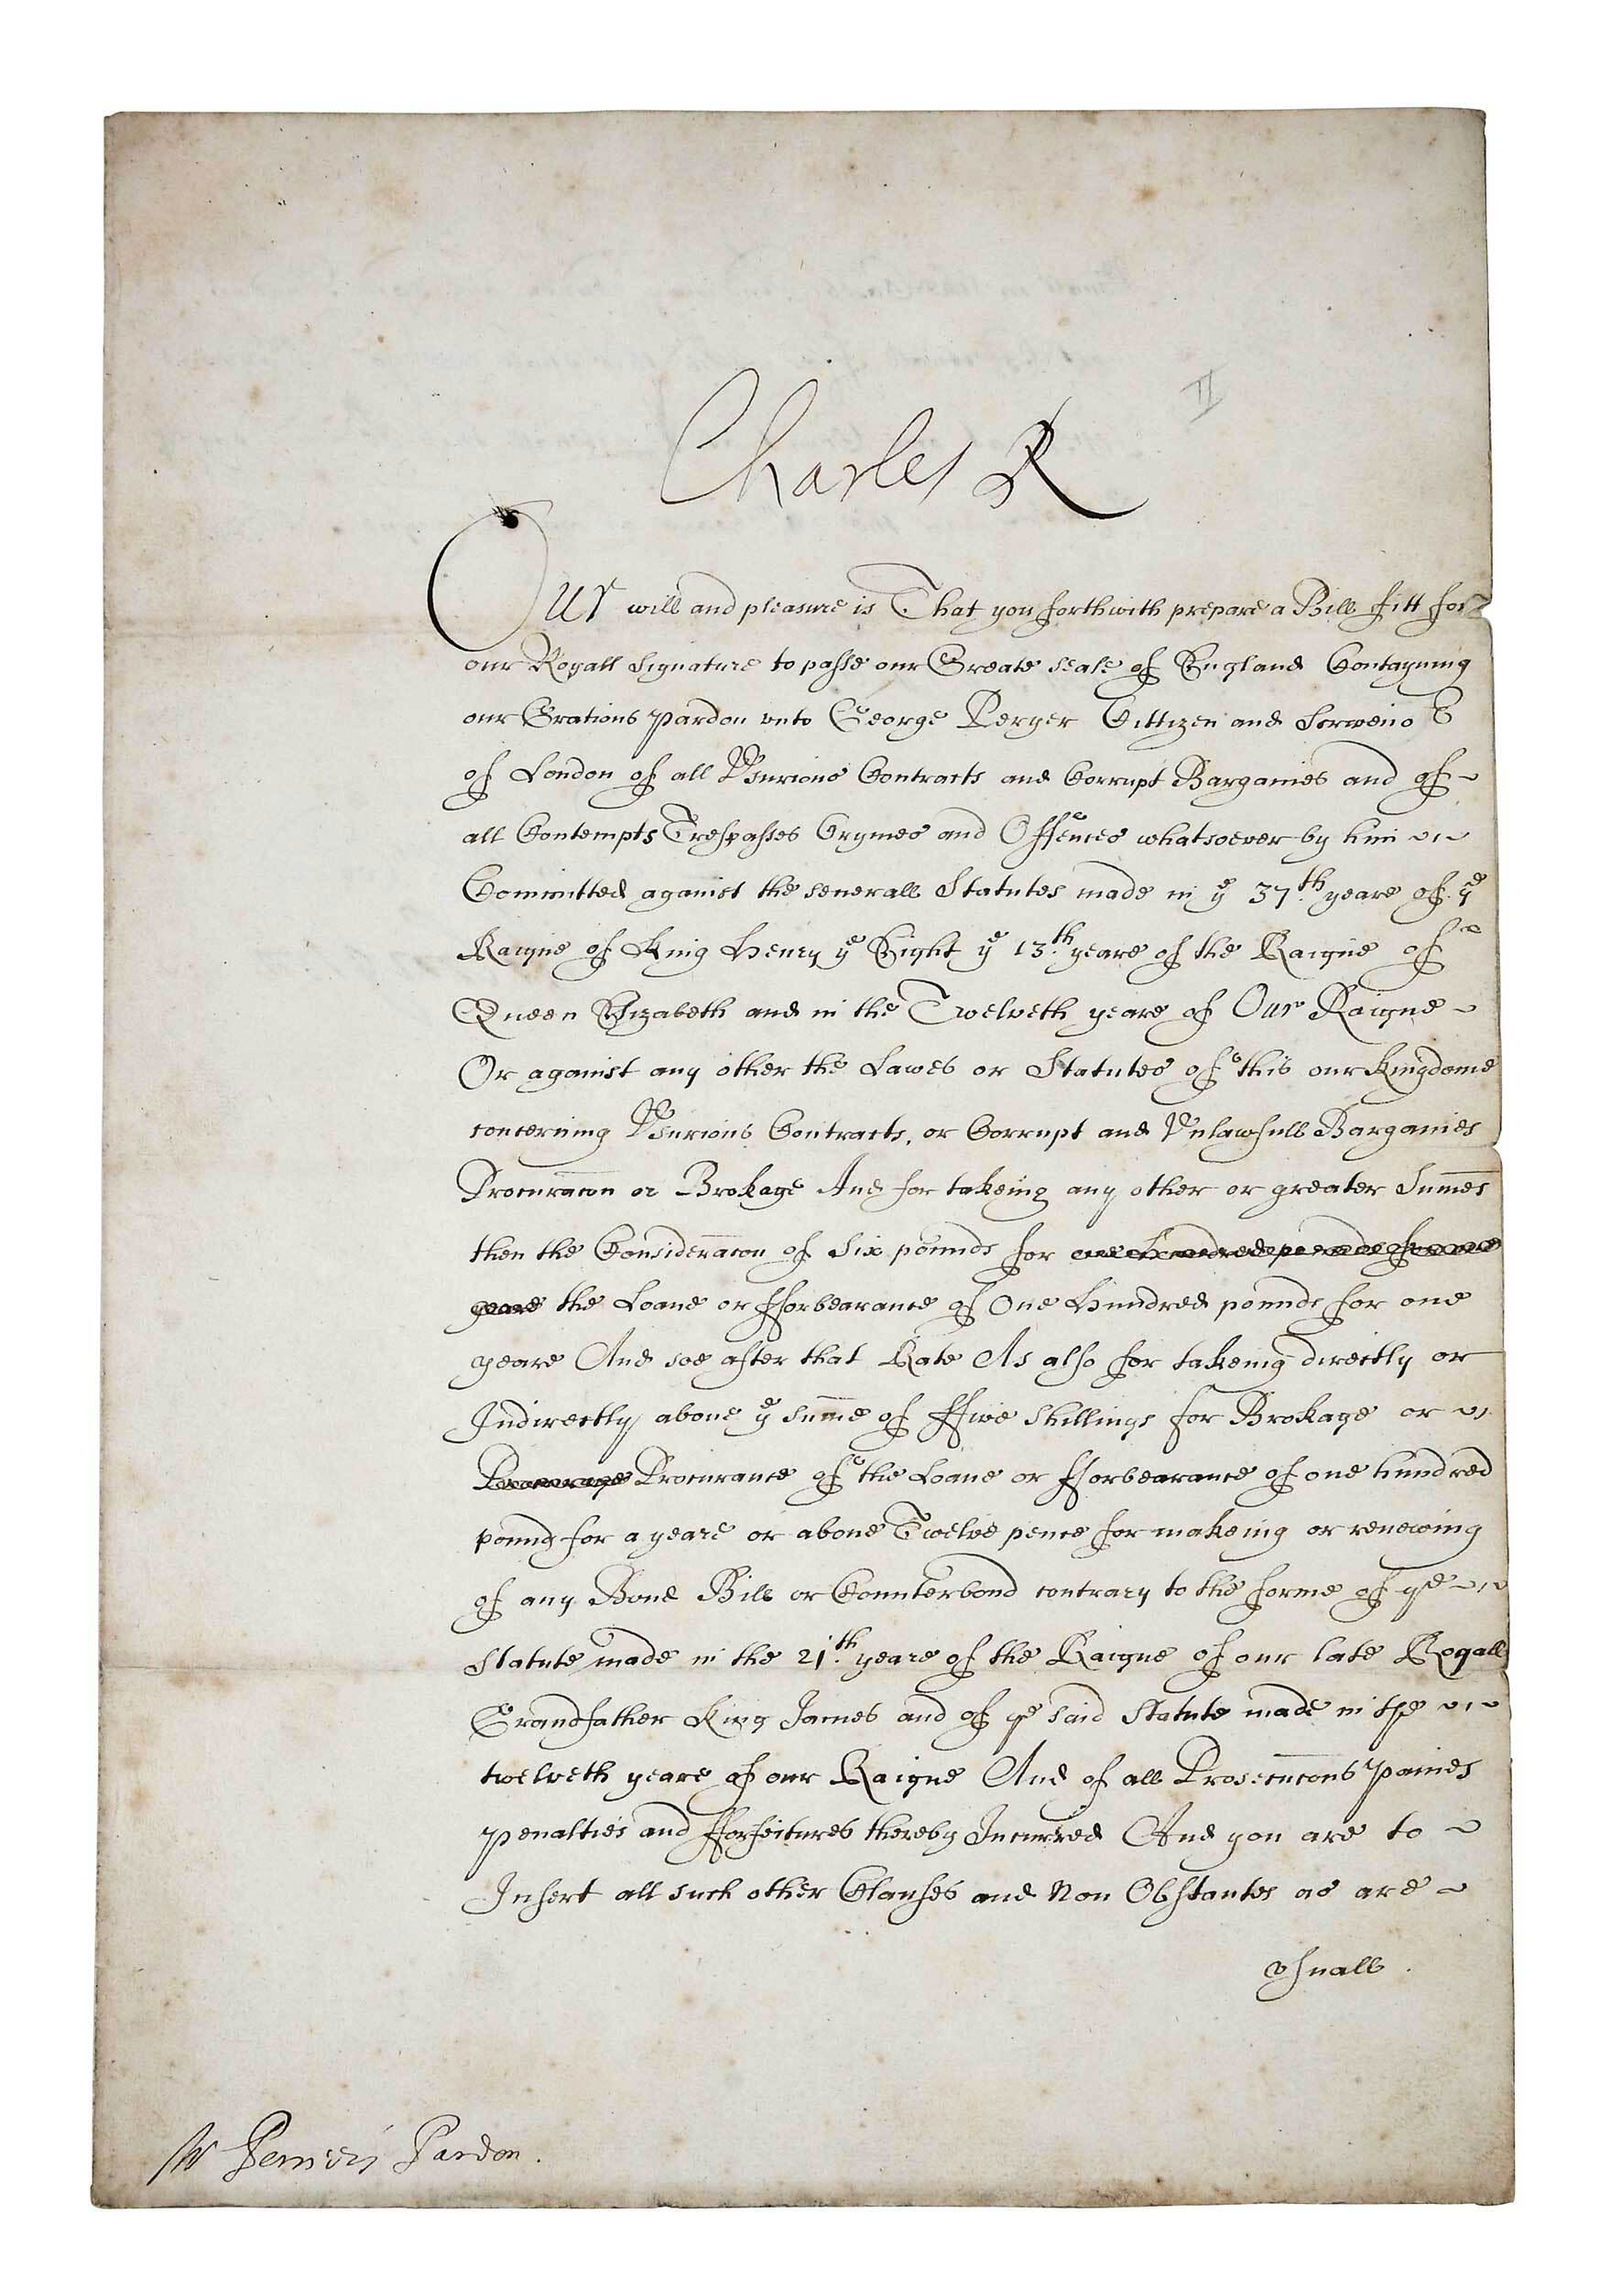 II
Charles R
Our will and pleasure is That you forthwith prepare a Bill fitt for
our Royall Signature to passe our Greate seale of England Contayning
our Gratious pardon vnto George Peryer Cittizen and Scrivenor
of London of all Vsurious Contracts and Corrupt Bargaines and of
all Contempts Trespasses Crymes and Offences whatsoever by him
Committed against the seuerall Statutes made in ye 37.th yeare of ye
Raigne of King Henry ye Eight ye 13.th yeare of the Raigne of
Queen Elizabeth and in the Twelveth yeare of Our Raigne
Or against any other the Lawes or Statutes of this our Kingdome
concerning Vsurious Contracts, or Corrupt and Vnlawfull Bargaines
Procuracon or Brokage And for takeing any other or greater Summes
then the Consideracon of Six pounds for one hundred pounds for one
yeare the Loane or fforbearance of One Hundred pounds for one
yeare And soe after that Rate As also for takeing directly or
Indirectly aboue ye summe of ffive Shillings for Brokage or
Procurance of the Loane or fforbearance of one hundred
pound for a yeare or aboue Twelve pence for makeing or renewing
of any Bond Bill or Counterbond contrary to the forme of ye
Statute made in the 21.th yeare of the Raigne of our late Royall
Grandfather King James and of ye said Statute made in the
twelveth yeare of our Raigne And of all Prosecucons paines
penalties and fforfeitures thereby Incurred And you are to
Insert all such other Clauses and Non Obstantes as are
vsuall.
Mr Pardon.